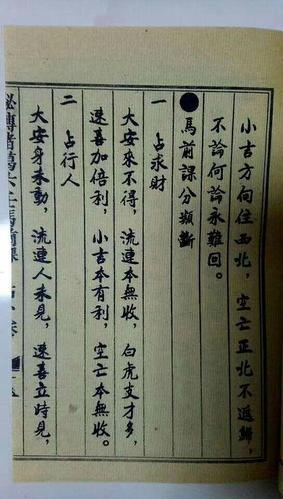 小吉方向往西北，空亡正北不返歸，
不論何論永難回。
●馬前課分類斷
一　占求財
大安來不得，流連本無收，白虎支才多，
速喜加倍利，小吉本有利，空亡本無收。
二　占行人
大安身未動，流連人未見，速喜立時見，